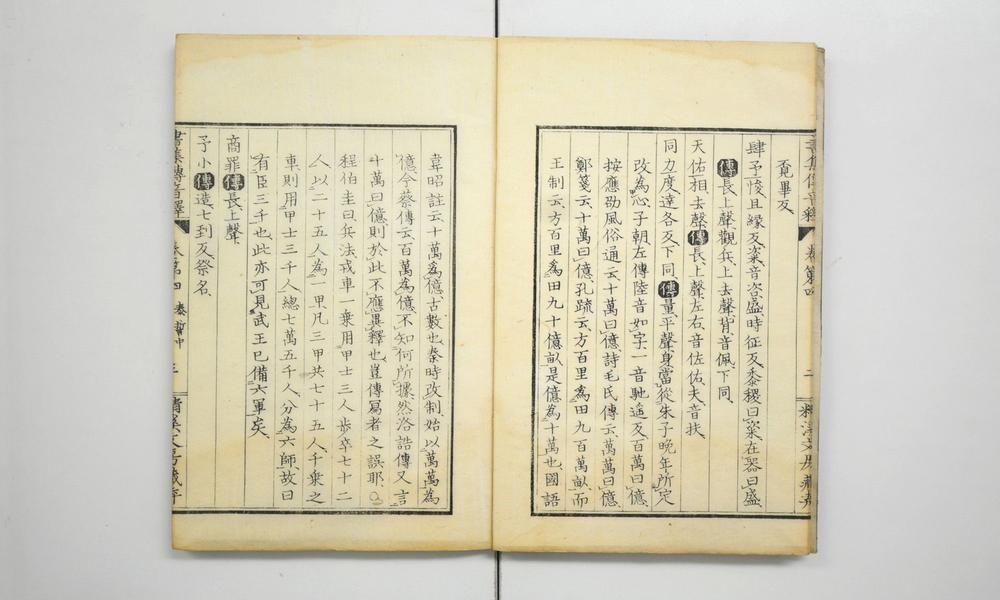 覔畢反
肆予悛且縁反粢音咨盛時征反黍稷曰粢在器曰盛
傳長上聲觀兵上去聲背音佩下同
天佑相去聲傳長上聲左右音佐佑夫音扶
同力度達各反下同傳量平聲身當從朱子晚年所定
改為心子朝左傳陸音如字一音馳遙反百萬曰億
按應劭風俗通云十萬曰億詩毛氏傳云萬萬曰億
鄭箋云十萬曰億孔疏云方百里為田九百萬畝而
王制云方百里為田九十億畝是億為十萬也國語
韋昭註云十萬為億古數也秦時改制始以萬萬為
億今蔡傳云百萬為億不知何所據然洛誥傳又言
十萬曰億則於此不應異釋也豈傳寫者之誤耶
程伯圭曰兵法戎車一乗用甲士三人步卒七十二
人以二十五人為一甲凡三甲共七十五人千乗之
車則用甲士三千人總七萬五千人分為六師故曰
有臣三千也此亦可見武王已備六軍矣
商罪傳長上聲
予小傳造七到反祭名
書集傳音釋 卷第四 泰誓中 三